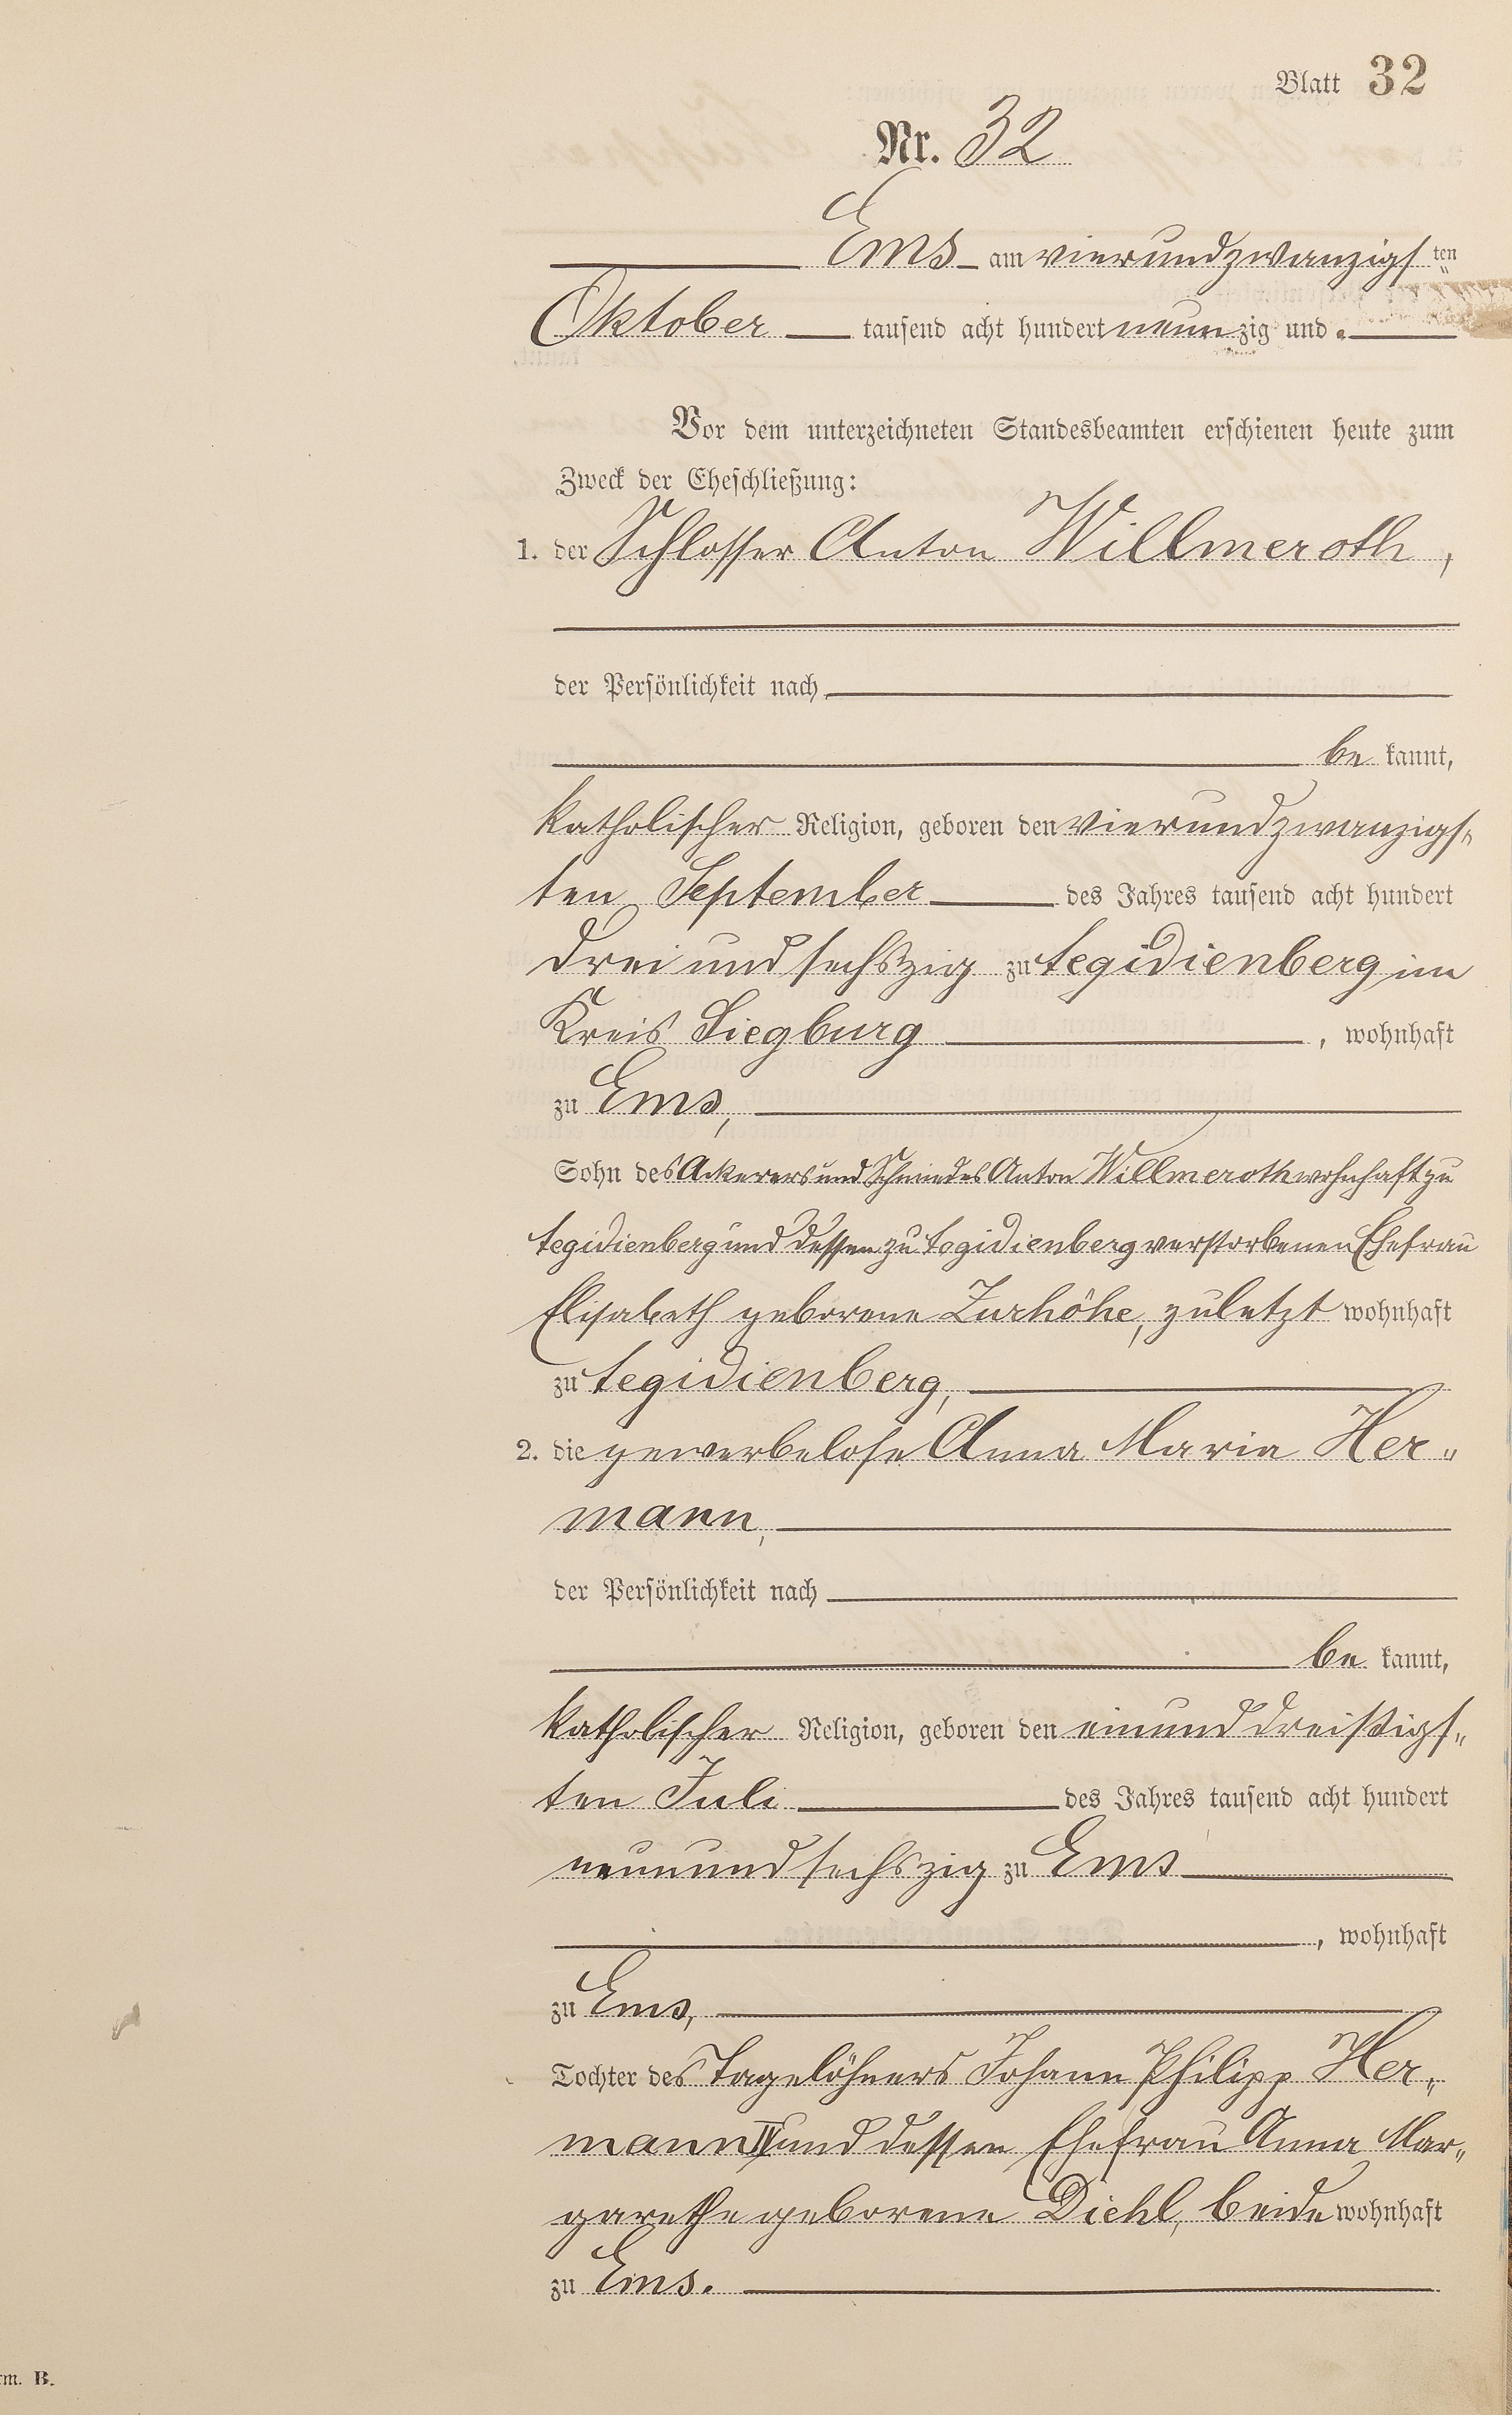 Blatt 32
Nr. 32
Ems am vierundzwanzigsten
Oktober tausend acht hundert neunzig und
Vor dem unterzeichneten Standesbeamten erschienen heute zum
Zweck der Eheschließung:
1. der Schlosser Anton Willmeroth,
der Persönlichkeit nach
be kannt,
katholischer Religion, geboren den vierundzwanzigs„
ten September des Jahres tausend acht hundert
dreiundsechszig zu tegidienberg im
Kreis Siegburg, wohnhaft
zu Ems,
Sohn des Ackerers und Schmiedes Anton Willmeroth wohnhaft zu
tegidienberg und dessen zu tegidienberg verstorbenen Ehefrau
Elisabeth geborene Zurhöhe, zuletzt wohnhaft
zu tegidienberg,
2. die gewerbelose Anna Maria Her„
mann,
der Persönlichkeit nach
be kannt,
katholischer Religion, geboren den einunddreißigs„
ten Juli des Jahres tausend acht hundert
neunundsechszig zu Ems
, wohnhaft
zu Ems,
Tochter des Tagelöhners Johann Philipp Her„
mann und dessen Ehefrau Anna Mar„
garethe geborene Diehl, beide wohnhaft
zu Ems.
rm. B.